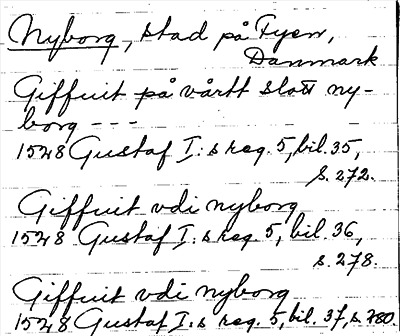 Nyborg, stad på Fyen,
Danmark
Giffuit på vårtt slott ny-
borg - - -
1528 Gustaf I:s reg. 5, bil. 35,
s. 272.
Giffuit vdi nyborg
1528 Gustaf I:s reg. 5, bil. 36,
s. 278.
Giffuit vdi nyborg
1528 Gustaf I:s reg. 5, bil. 37, s. 280.